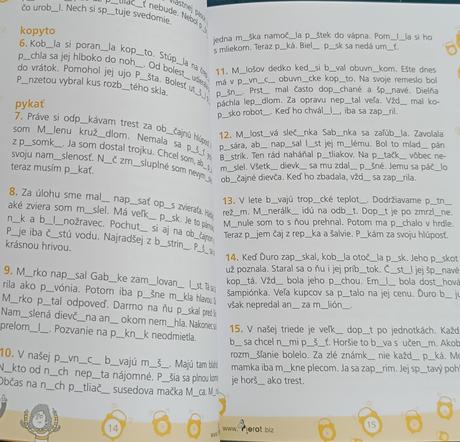 p_tliač_ť nebude. Neboj
čo urob_l. Nech si sp_tuje svedomie.
kopyto
6. Kob_la si poran_la kop_to. Stúp_la na
p_chla sa jej hlboko do noh_. Od bolest_
do vrátok. Pomohol jej ujo P_šta. Bolesť
P_nzetou vybral kus rozb_tého skla.
pykať
7. Práve si odp_kávam trest za ob_čajnú hlúposť
som M_lenu kruž_dlom. Nemala sa p_š_ť
z p_somk_. Ja som dostal trojku. Chcel som, ab_
svoju nam_slenosť. N_č zm_sluplné som nevym_
teraz musím p_kať.
8. Za úlohu sme mal_ nap_sať op_s zvieraťa.
aké zviera som m_slel. Má veľk_ p_sk. Je to
n_k a b_l_nožravec. Pochut_ si aj na ob_čajnom
P_je iba č_stú vodu. Najradšej z b_strín_. P_š_
krásnou hrivou.
9. M_rko nap_sal Gab_ke zam_lovan_ l_st. Tá sa
rila ako p_vónia. Potom iba p_šne m_kla hlavou.
M_rko p_tal odpoveď. Darmo na ňu p_skal pred
Nam_slená dievč_na an_ okom nem_hla. Nakoniec sa
prelom_l_. Pozvanie na p_kn_k neodmietla.
10. V našej p_vn_c_ b_vajú m_š_. Majú tam
N_kto od n_ch nep_ta nájomné. P_šia sa plnou
Občas na n_ch p_tliač_ susedova mačka M_ca.
14
jedna m_ška namoč_la p_štek do vápna. Pom_l_la si ho
s mliekom. Teraz p_ká. Biel_ p_sk sa nedá um_ť.
11. M_lošov dedko ked_si b_val obuvn_kom. Ešte dnes
má v p_vn_c_ obuvn_cke kop_to. Na svoje remeslo bol
p_šn_. Prst_ mal často dop_chané a šp_navé. Dielňa
páchla lep_dlom. Za opravu nep_tal veľa. Vžd_ mal ko-
p_sko robot_. Keď ho chvál_l_, iba sa zap_ril.
12. M_lost_vá sleč_nka Sab_nka sa zaľúb_la. Zavolala
p_sára, ab_ nap_sal l_st jej m_lému. Bol to mlad_ pán
B_strík. Ten rád naháňal p_tliakov. Na p_tačk_ vôbec ne-
m_slel. Všetk_ dievk_ sa mu zdal_ p_šné. Jemu sa páč_lo
ob_čajné dievča. Keď ho zbadala, vžd_ sa zap_rila.
13. V lete b_vajú trop_cké teplot_. Dodržiavame p_tn_
rež_m. M_nerálk_ idú na odb_t. Dop_t je po zmrzl_ne.
M_nule som to s ňou prehnal. Potom ma p_chalo v hrdle.
Teraz p_jem čaj z rep_ka a šalvie. P_kám za svoju hlúposť.
14. Keď Ďuro zap_skal, kob_la otoč_la p_sk. Jeho p_skot
už poznala. Staral sa o ňu i jej príb_tok. Č_st_l jej šp_navé
kop_tá. Vžd_ bola jeho p_chou. Em_l_ bola dosť_hová
šampiónka. Veľa kupcov sa p_talo na jej cenu. Ďuro b_ ju
však nepredal an_ za m_lión_.
15. V našej triede je veľk_ dop_t po jednotkách. Každ_
b_ sa chcel n_mi p_š_ť. Horšie to b_va s učen_m. Akob_
rozm_šľanie bolelo. Za zlé známk_ nie každ_ p_ká. Moja
mamka iba m_kne plecom. Ja sa zap_rim. Jej sp_tavý pohľad
je horš_ ako trest.
www. Pierot .biz
15